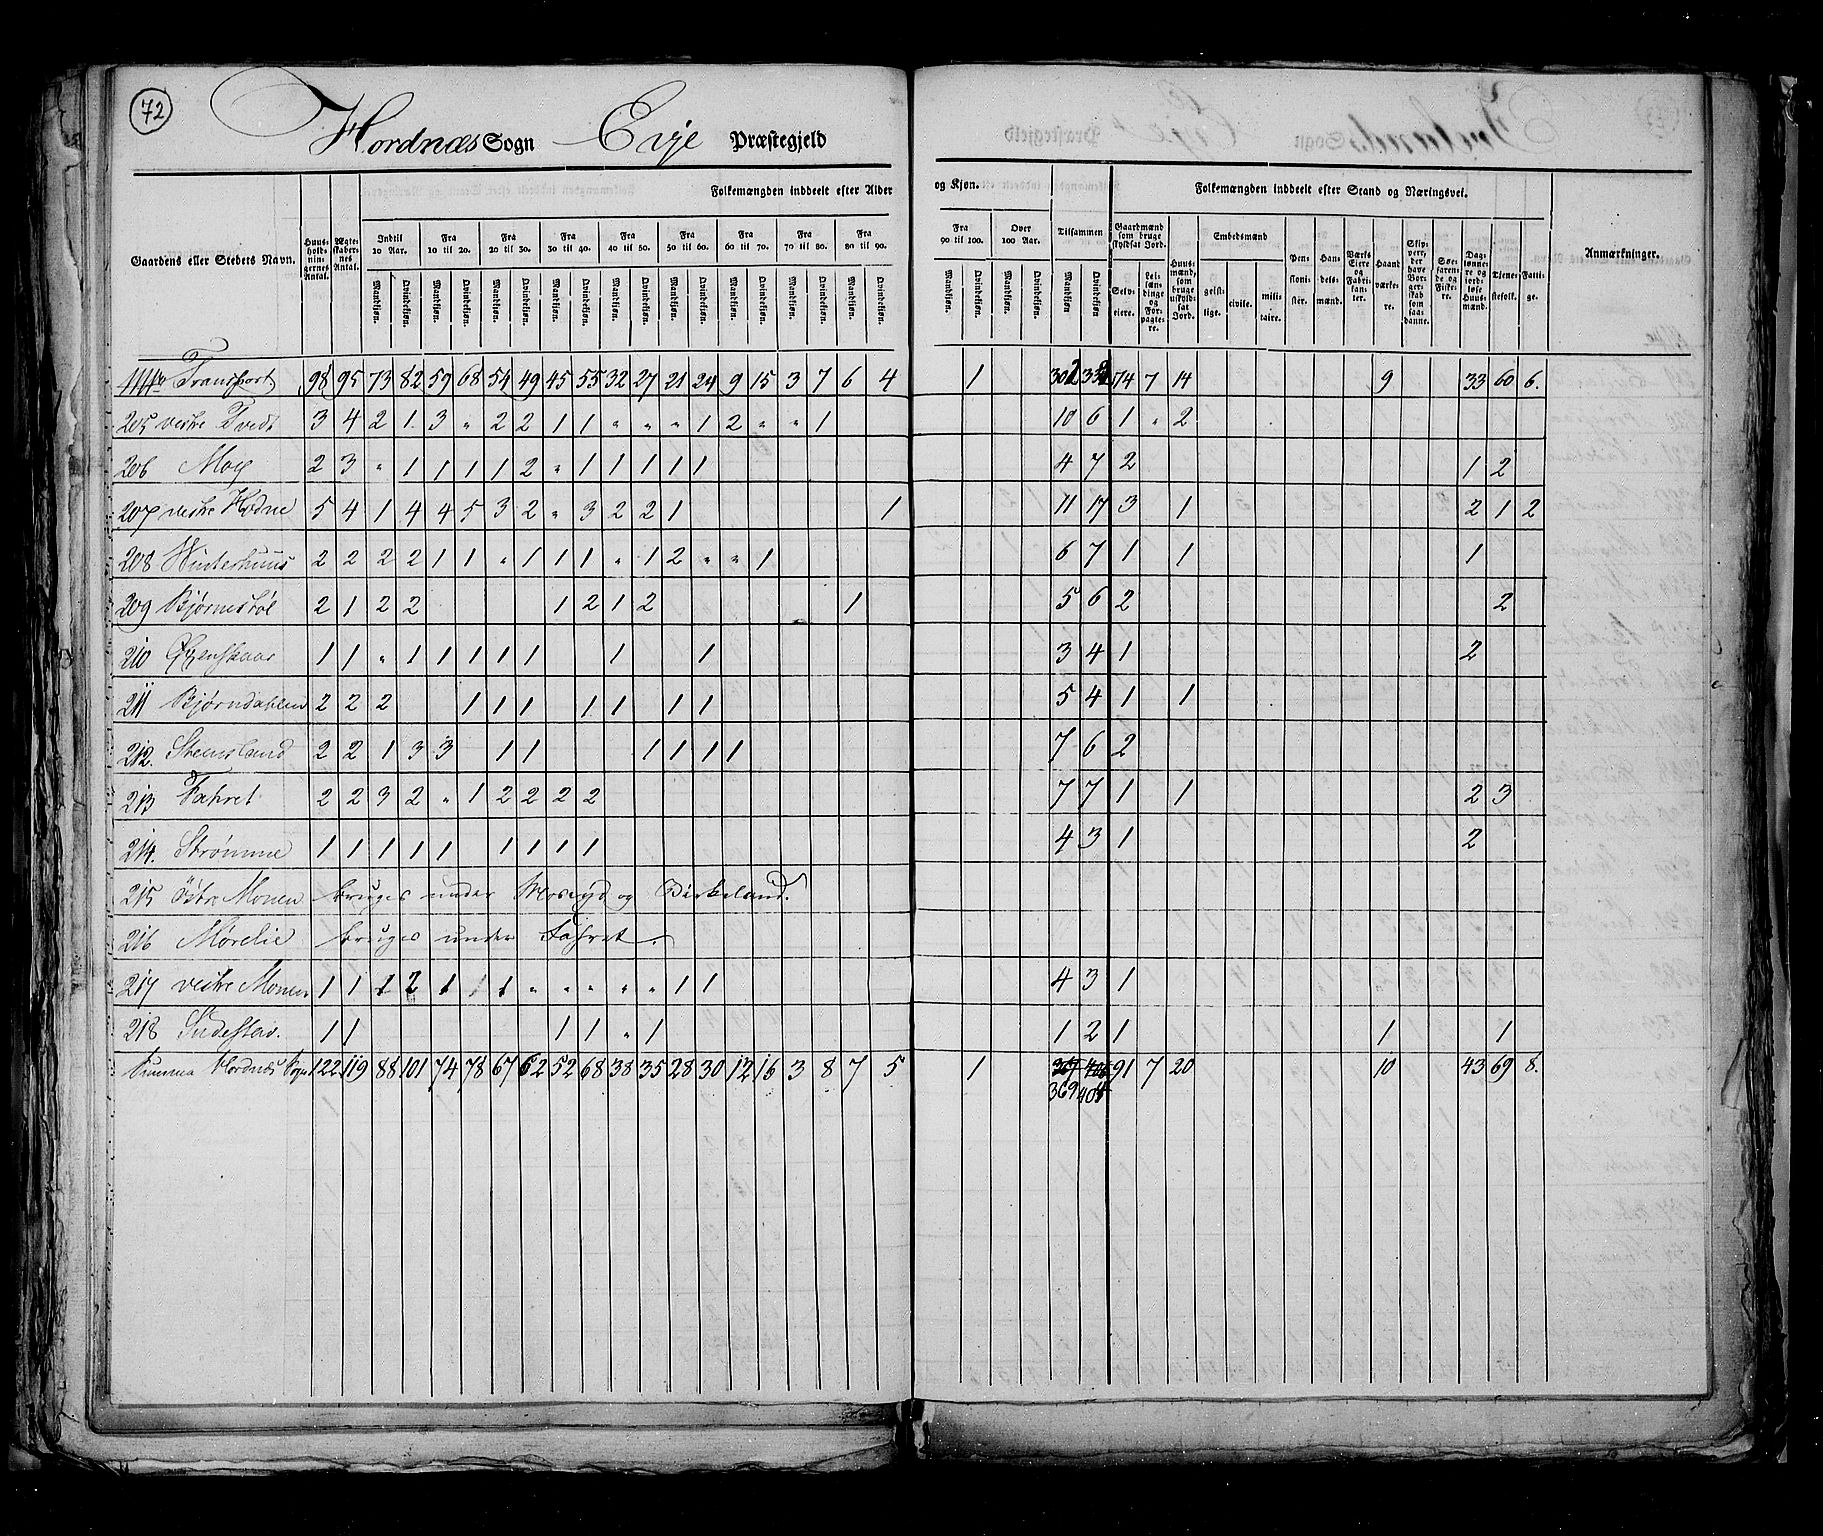 72
Hordnæs Sogn Evje Præstegjeld
Folkemængden inddeelt efter Alder og Kjøn.
Folkemængden inddeelt efter Stand og Næringsvei.
Gaardens eller Stedets Navn.
Huusholdningernes Antal.
Ægteskabernes Antal.
Indtil 10 Aar. Fra 10 til 20. Fra 20 til 30. Fra 30 til 40. Fra 40 til 50. Fra 50 til 60. Fra 60 til 70. Fra 70 til 80. Fra 80 til 90. Fra 90 til 100. Over 100 Aar. Tilsammen
Mandkjøn. Qvindekjøn. Mandkjøn. Qvindekjøn. Mandkjøn. Qvindekjøn. Mandkjøn. Qvindekjøn. Mandkjøn. Qvindekjøn. Mandkjøn. Qvindekjøn. Mandkjøn. Qvindekjøn. Mandkjøn. Qvindekjøn. Mandkjøn. Qvindekjøn. Mandkjøn. Qvindekjøn. Mandkjøn. Qvindekjøn. Mandkjøn. Qvindekjøn.
Gaardmænd som bruge skyldsat Jord.
Selveiere.
Leilændinge og Forpagtere.
Huusmænd, som bruge uskyldsat Jord.
Embedsmænd
geistlige. civile. militaire.
Pensionister.
Handelsmænd.
Værks Eiere og Fabrikanter.
Haandværkere.
Skippere, der have Borgerskab som saadanne.
Søefarende og Fiskere.
Daglønnere og jordløse Huusmænd.
Tjenestefolk.
Fattige.
Anmærkninger.
Transport 98 95 73 82 59 68 54 49 45 55 32 27 21 24 9 15 3 7 6 4 1 74 7 14 9 33 60 6.
205 vestre Tvedt 3 4 2 1 3 " 2 2 1 1 " " " 1 2 " " 1 10 6 1 " 2
206 Moy 2 3 " 1 1 1 1 2 " 1 1 1 1 1 4 7 2 1 2
207 vestre Hodne 5 4 1 4 4 5 3 2 " 3 2 2 1 1 11 17 3 1 2 1 2
208 Winterhuus 2 2 2 2 1 1 " 1 1 1 " 1 2 " " 1 6 7 1 1 1
209 Bjørnestøl 2 1 2 2 1 2 1 2 1 5 6 2 2
210 1 1 " 1 1 1 1 1 1 1 3 4 1 2
211 Bjørndahlen 2 2 2 1 1 1 1 1 1 1 5 4 1 1
212. Steensland 2 2 1 3 3 1 1 1 1 1 1 7 6 2
213 Fahret 2 2 3 2 " 1 2 2 2 2 7 7 1 1 2 3
214. Strømme 1 1 1 1 1 1 1 1 1 4 3 1 2
215 Østre Monen bruges under Mosbyd og Birkeland.
216 Mørelie bruges under Fahret.
217 vestre Monen 1 1 1 2 1 1 1 " " " " " 1 1 4 3 1
218 1 1 1 1 " 1 1 2 1 1 1
Summa Hordnæs Sogn 122 119 88 101 74 78 67 62 52 68 38 35 28 30 12 16 3 8 7 5 1 91 7 20 10 43 69 8.
369 404